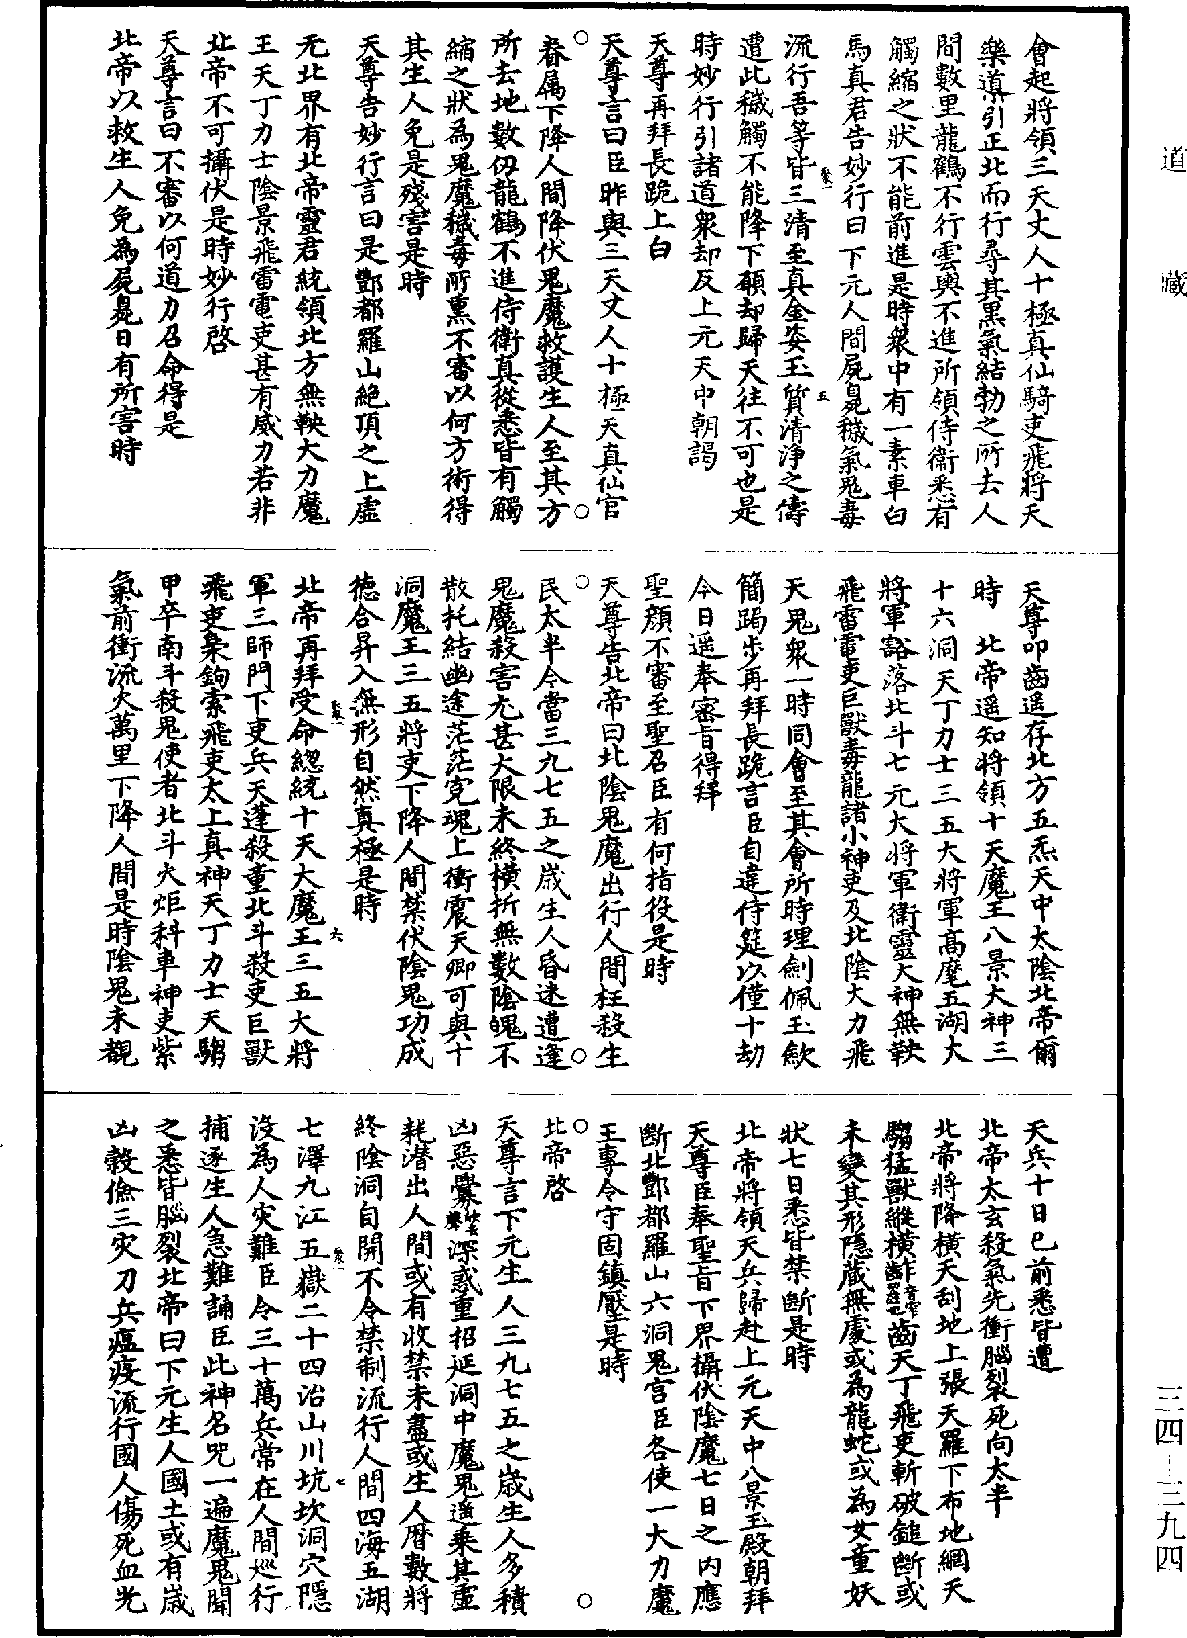 道藏
會起將領三天丈人十極真仙騎吏飛將天
樂導引正北而行尋其黑氣結勃之所去人
間數里龍鶴不行雲輿不進所領侍衛悉有
觸縮之狀不能前進是時衆中有一素車白
馬真君告妙行曰下元人間屍臰穢氣鬼毒
流行吾等皆三清至真金姿玉質清淨之儔
遭此穢觸不能降下願却歸天往不可也是
時妙行引諸道衆却反上元天中朝謁
天尊再拜長跪上白
天尊言曰臣昨與三天丈人十極天真仙官
眷屬下降人間降伏鬼魔救護生人至其方
所去地數仞龍鶴不進侍衛真從悉皆有觸
縮之狀為鬼魔穢毒所熏不審以何方術得
其生人免是殘害是時
天尊告妙行言曰是酆都羅山絕頂之上虛
无北界有北帝靈君統領北方無鞅大力魔
王天丁力士陰景飛雷電吏甚有威力若非
北帝不可攝伏是時妙行啓
天尊言曰不審以何道力召命得是
北帝以救生人免為屍臰日有所害時
天尊叩齒遥存北方五炁天中太陰北帝爾
時　北帝遥知將領十天魔王八景大神三
十六洞天丁力士三五大將軍高麾五湖大
將軍豁落北斗七元大將軍衛靈大神無鞅
飛雷電吏巨獸毒龍諸小神吏及北陰大力飛
天鬼衆一時同會至其會所時理劍佩玉歛
簡躅步再拜長跪言臣自違侍筵以僅十劫
今日遥奉審旨得拜
聖顏不審至聖召臣有何指役是時
天尊告北帝曰北陰鬼魔出行人間枉殺生
民太半今當三九七五之歲生人昏迷遭逢
鬼魔殺害尤甚大限未終橫折無數陰魄不
散托結幽途茫茫寃魂上衝震天卿可與十
洞魔王三五將吏下降人間禁伏陰鬼功成
德合昇入無形自然真極是時
北帝再拜受命總統十天大魔王三五大將
軍三師門下吏兵天蓬殺童北斗殺吏巨獸
飛吏枭鉤索飛吏太上真神天丁力士天騶
甲卒南斗殺鬼使者北斗火炬科車神吏紫
氣前衝流火萬里下降人間是時陰鬼未覩
天兵十日已前悉皆遭
北帝太玄殺氣先衝腦裂死向太半
北帝將降橫天刮地上張天羅下布地網天
騶猛獸縱橫齚齒天丁飛吏斬破鎚斷或
未變其形隱藏無處或為龍蛇或為女童妖
狀七日悉皆禁斷是時
北帝將領天兵歸赴上元天中八景玉殿朝拜
天尊臣奉聖旨下界攝伏陰魔七日之内應
斷北酆都羅山六洞鬼宫臣各使一大力魔
王專令守固鎮壓是時
北帝啓
天尊言下元生人三九七五之歲生人多積
凶惡釁深惑重招延洞中魔鬼遥乘其虛
耗潜出人間或有收禁未盡或生人曆數將
終陰洞自開不令禁制流行人間四海五湖
七澤九江五嶽二十四治山川坑坎洞穴隱
沒為人灾難臣令三十萬兵常在人間巡行
捕逐生人急難誦臣此神名咒一遍魔鬼聞
之悉皆腦裂北帝曰下元生人國土或有歲
凶穀儉三灾刀兵瘟疫流行國人傷死血光
三四—三九四